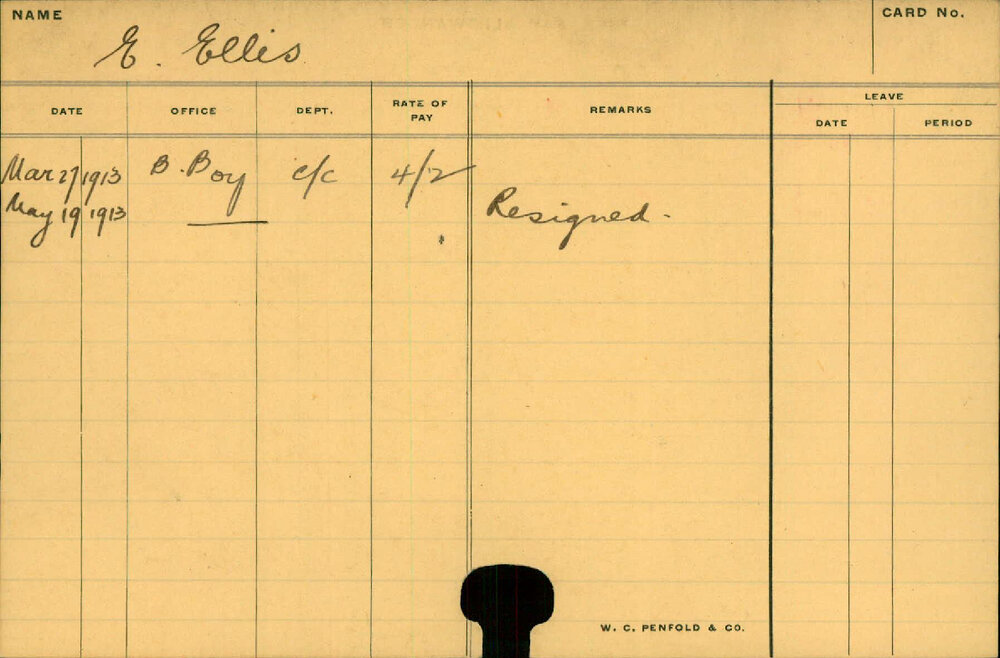 NAME E. Ellis CARD No.
DATE OFFICE DEPT. RATE OF PAY REMARKS LEAVE
DATE PERIOD
Mar 27 1913 B. Boy c/c 4/2
May 19 1913 Resigned.
W. C. PENFOLD & CO.